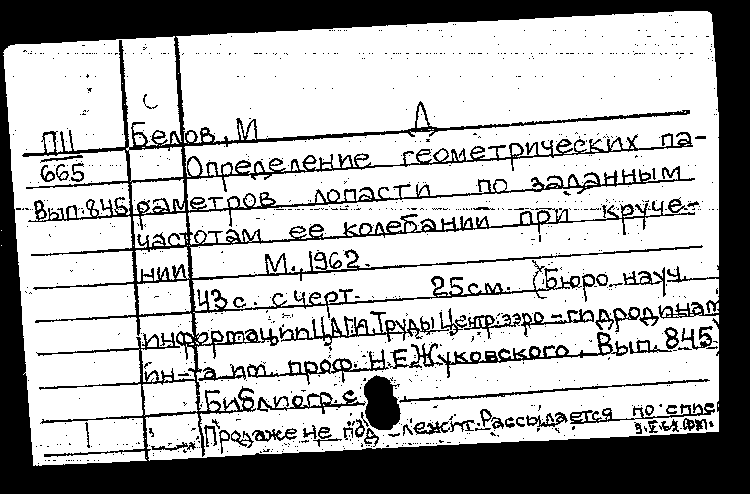 Д
ПII Белов, М
665 Определение геометрических па-
Вып. 845 раметров лопасти по заданным
частотам ее колебаний при круче-
нии М., 1962.
43 с. с черт. 25 см. (Бюро науч.
информации ЦАГИ. Труды Центр. аэро-гидродинам
ин-та им. проф. Н.Е. Жуковского. Вып. 845)
Библиогр. с
Продаже не под лежит. Рассылается по